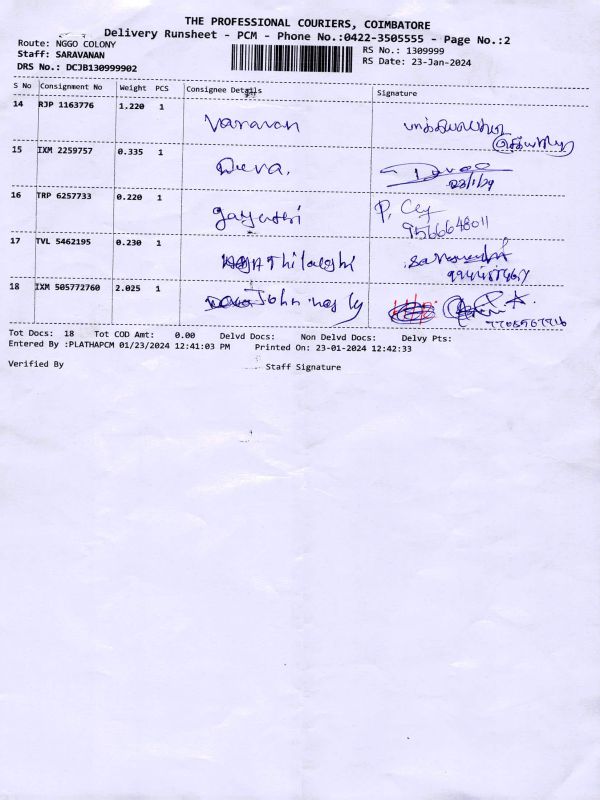 THE PROFESSIONAL COURIERS, COIMBATORE
Delivery Runsheet - PCM - Phone No.:0422-3505555 - Page No.:2
Route: NGGO COLONY
Staff: SARAVANAN
DRS No.: DCJB130999902
RS No.: 1309999
RS Date: 23-Jan-2024
S No Consignment No Weight PCS Consignee Details Signature
14 RJP 1163776 1.220 1 Vanavan
15 IXM 2259757 0.335 1 Deva.
16 TRP 6257733 0.220 1 gayatri P.
9566648011
17 TVL 5462195 0.230 1 Thilaghi
18 IXM 505772760 2.025 1 John
Tot Docs: 18 Tot COD Amt: 0.00 Delvd Docs: Non Delvd Docs: Delvy Pts:
Entered By :PLATHAPCM 01/23/2024 12:41:03 PM Printed On: 23-01-2024 12:42:33
Verified By Staff Signature